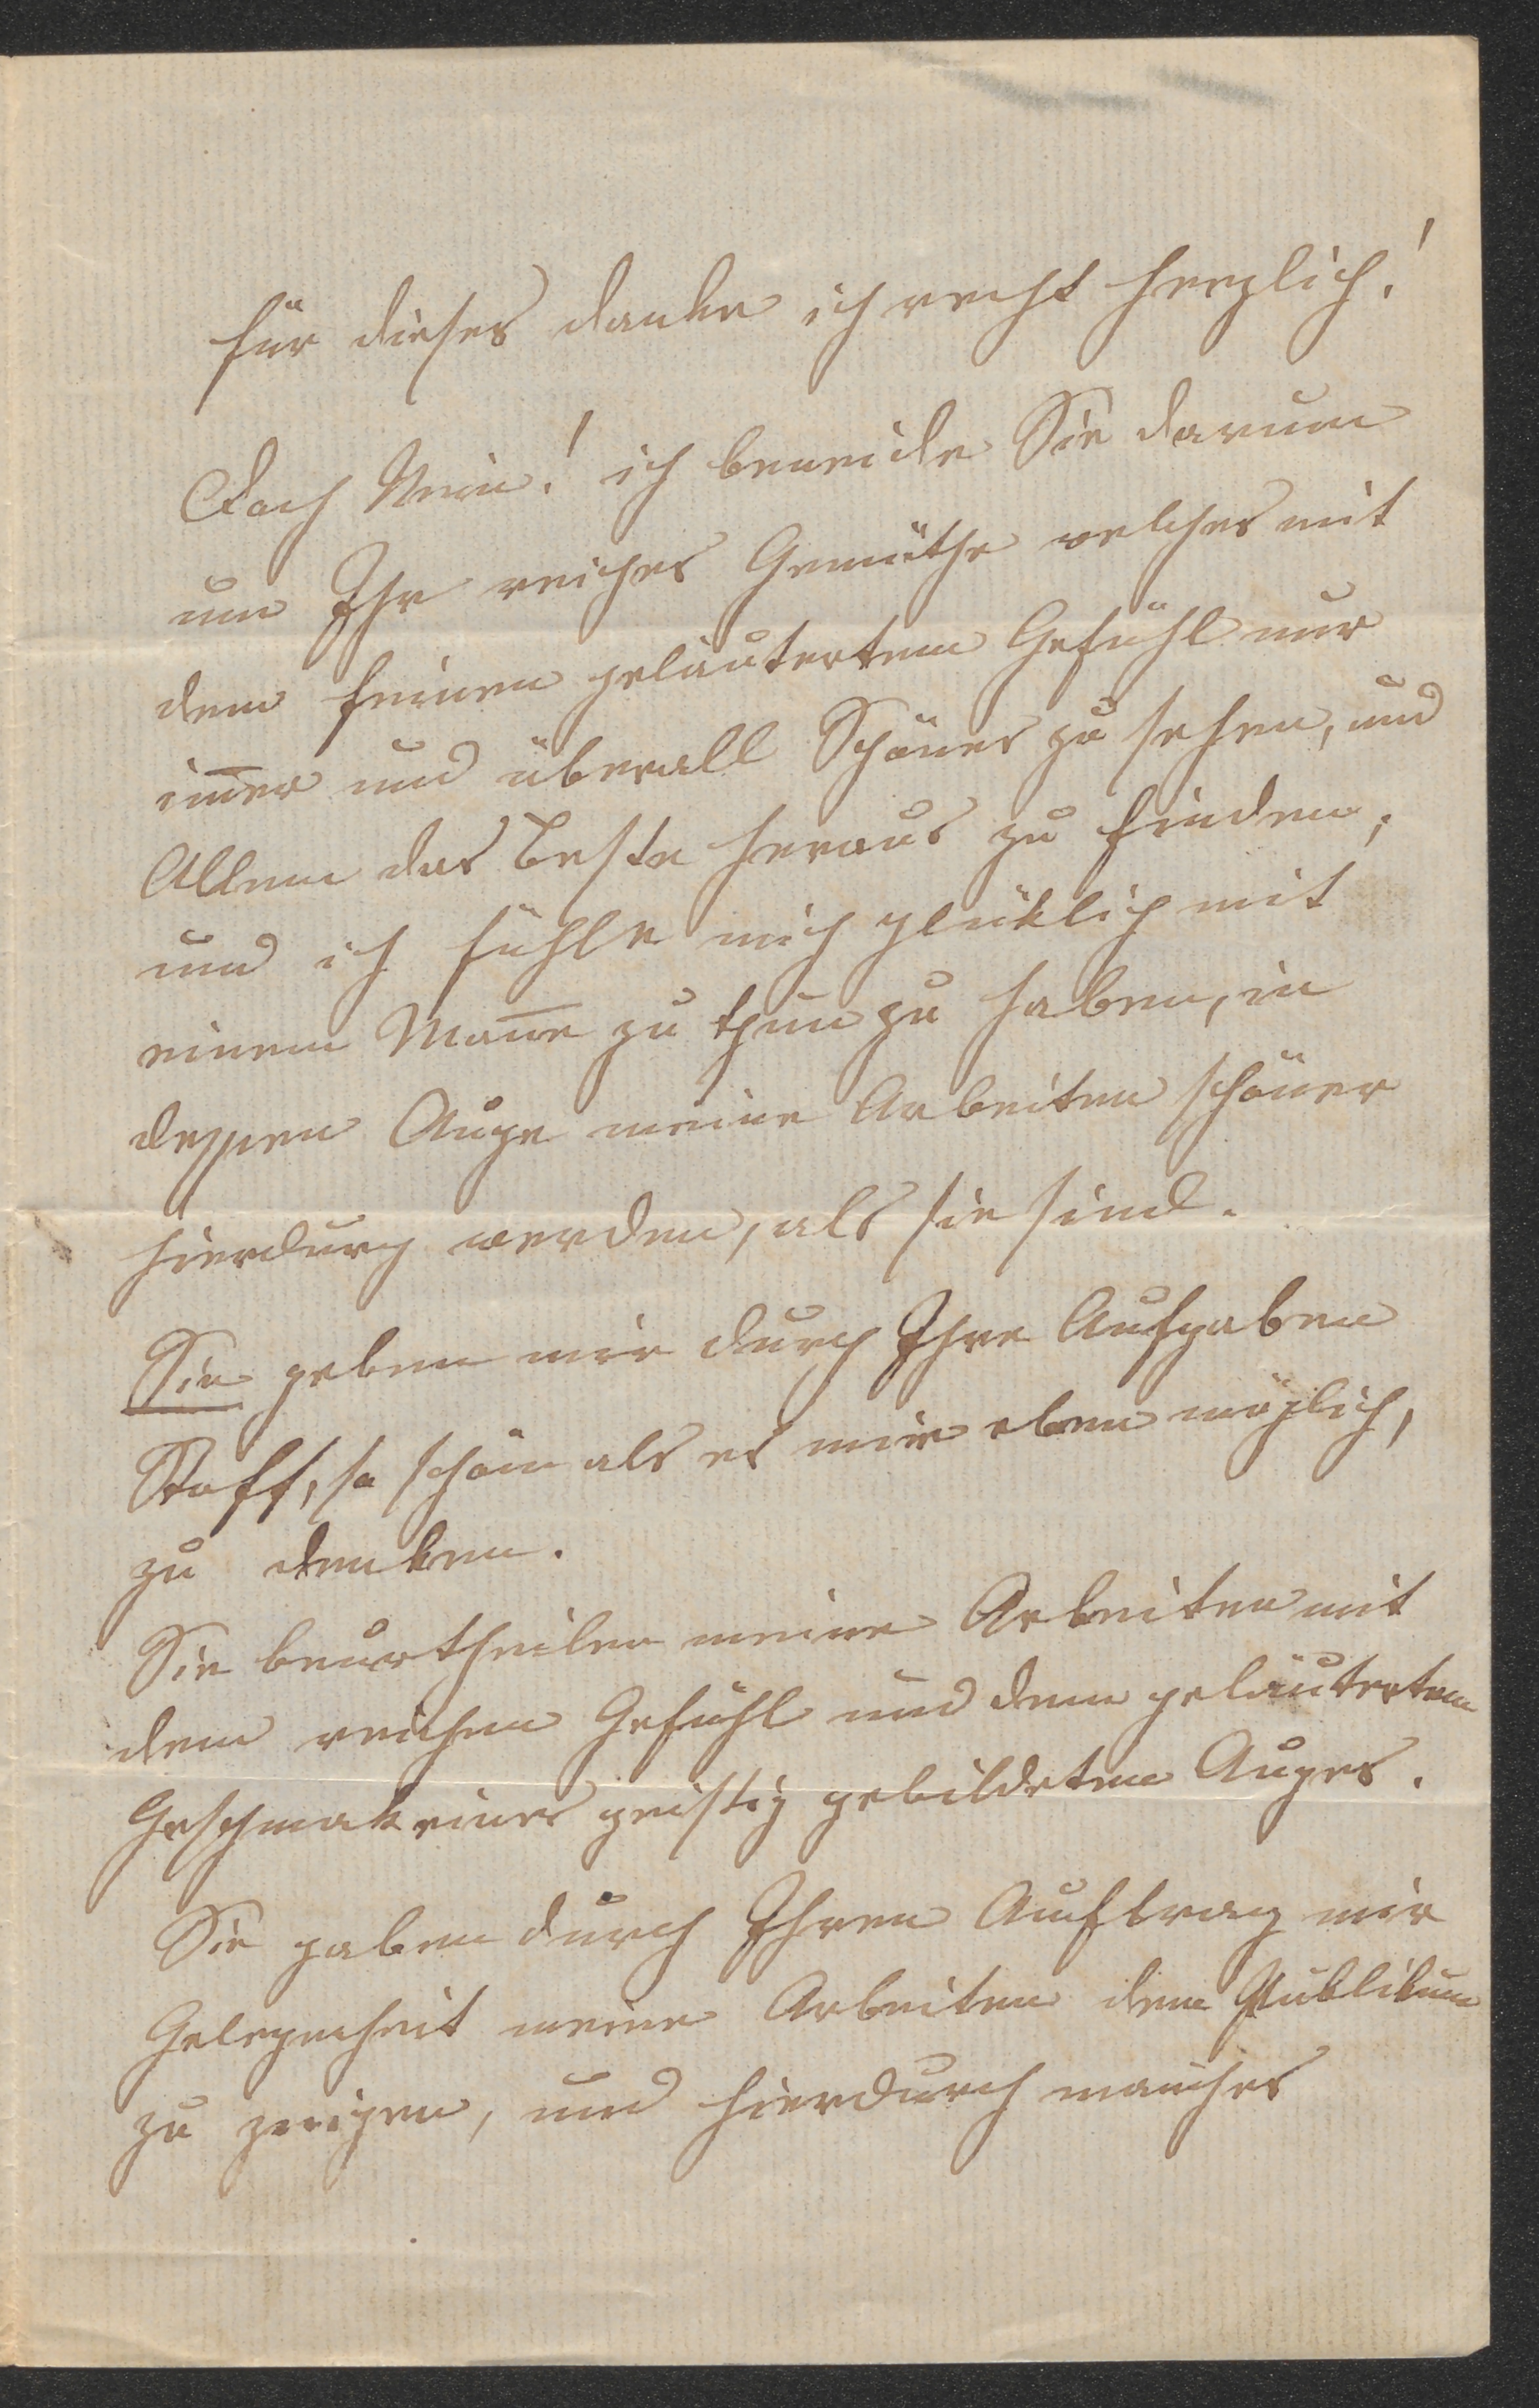 für dieses danke ich recht herzlich!
Doch Nein! ich beneide Sie darum
um Ihr reiches Gemüthe welches mit
dem feinen geläutertem Gefühl nur
im̅er und überall Schönes zu sehen, und
Allem das Beste heraus zu finden,
und ich fühle mich glüklich mit
einem Man̅e zu thun zu haben, in
dessen Auge meine Arbeiten schöner
hierdurch werden, als sie sind.
Sie geben mir durch Ihre Aufgaben
Stoff, so schön als es mir eben möglich,
zu denken.
Sie beurtheilen meine Arbeiten mit
dem reichen Gefühl und dem geläutertem
Geschmak eines geistig gebildeten Auges.
Sie gaben durch Ihren Auftrag mir
Gelegenheit meine Arbeiten dem Publikum
zu zeigen, und hierdurch manches